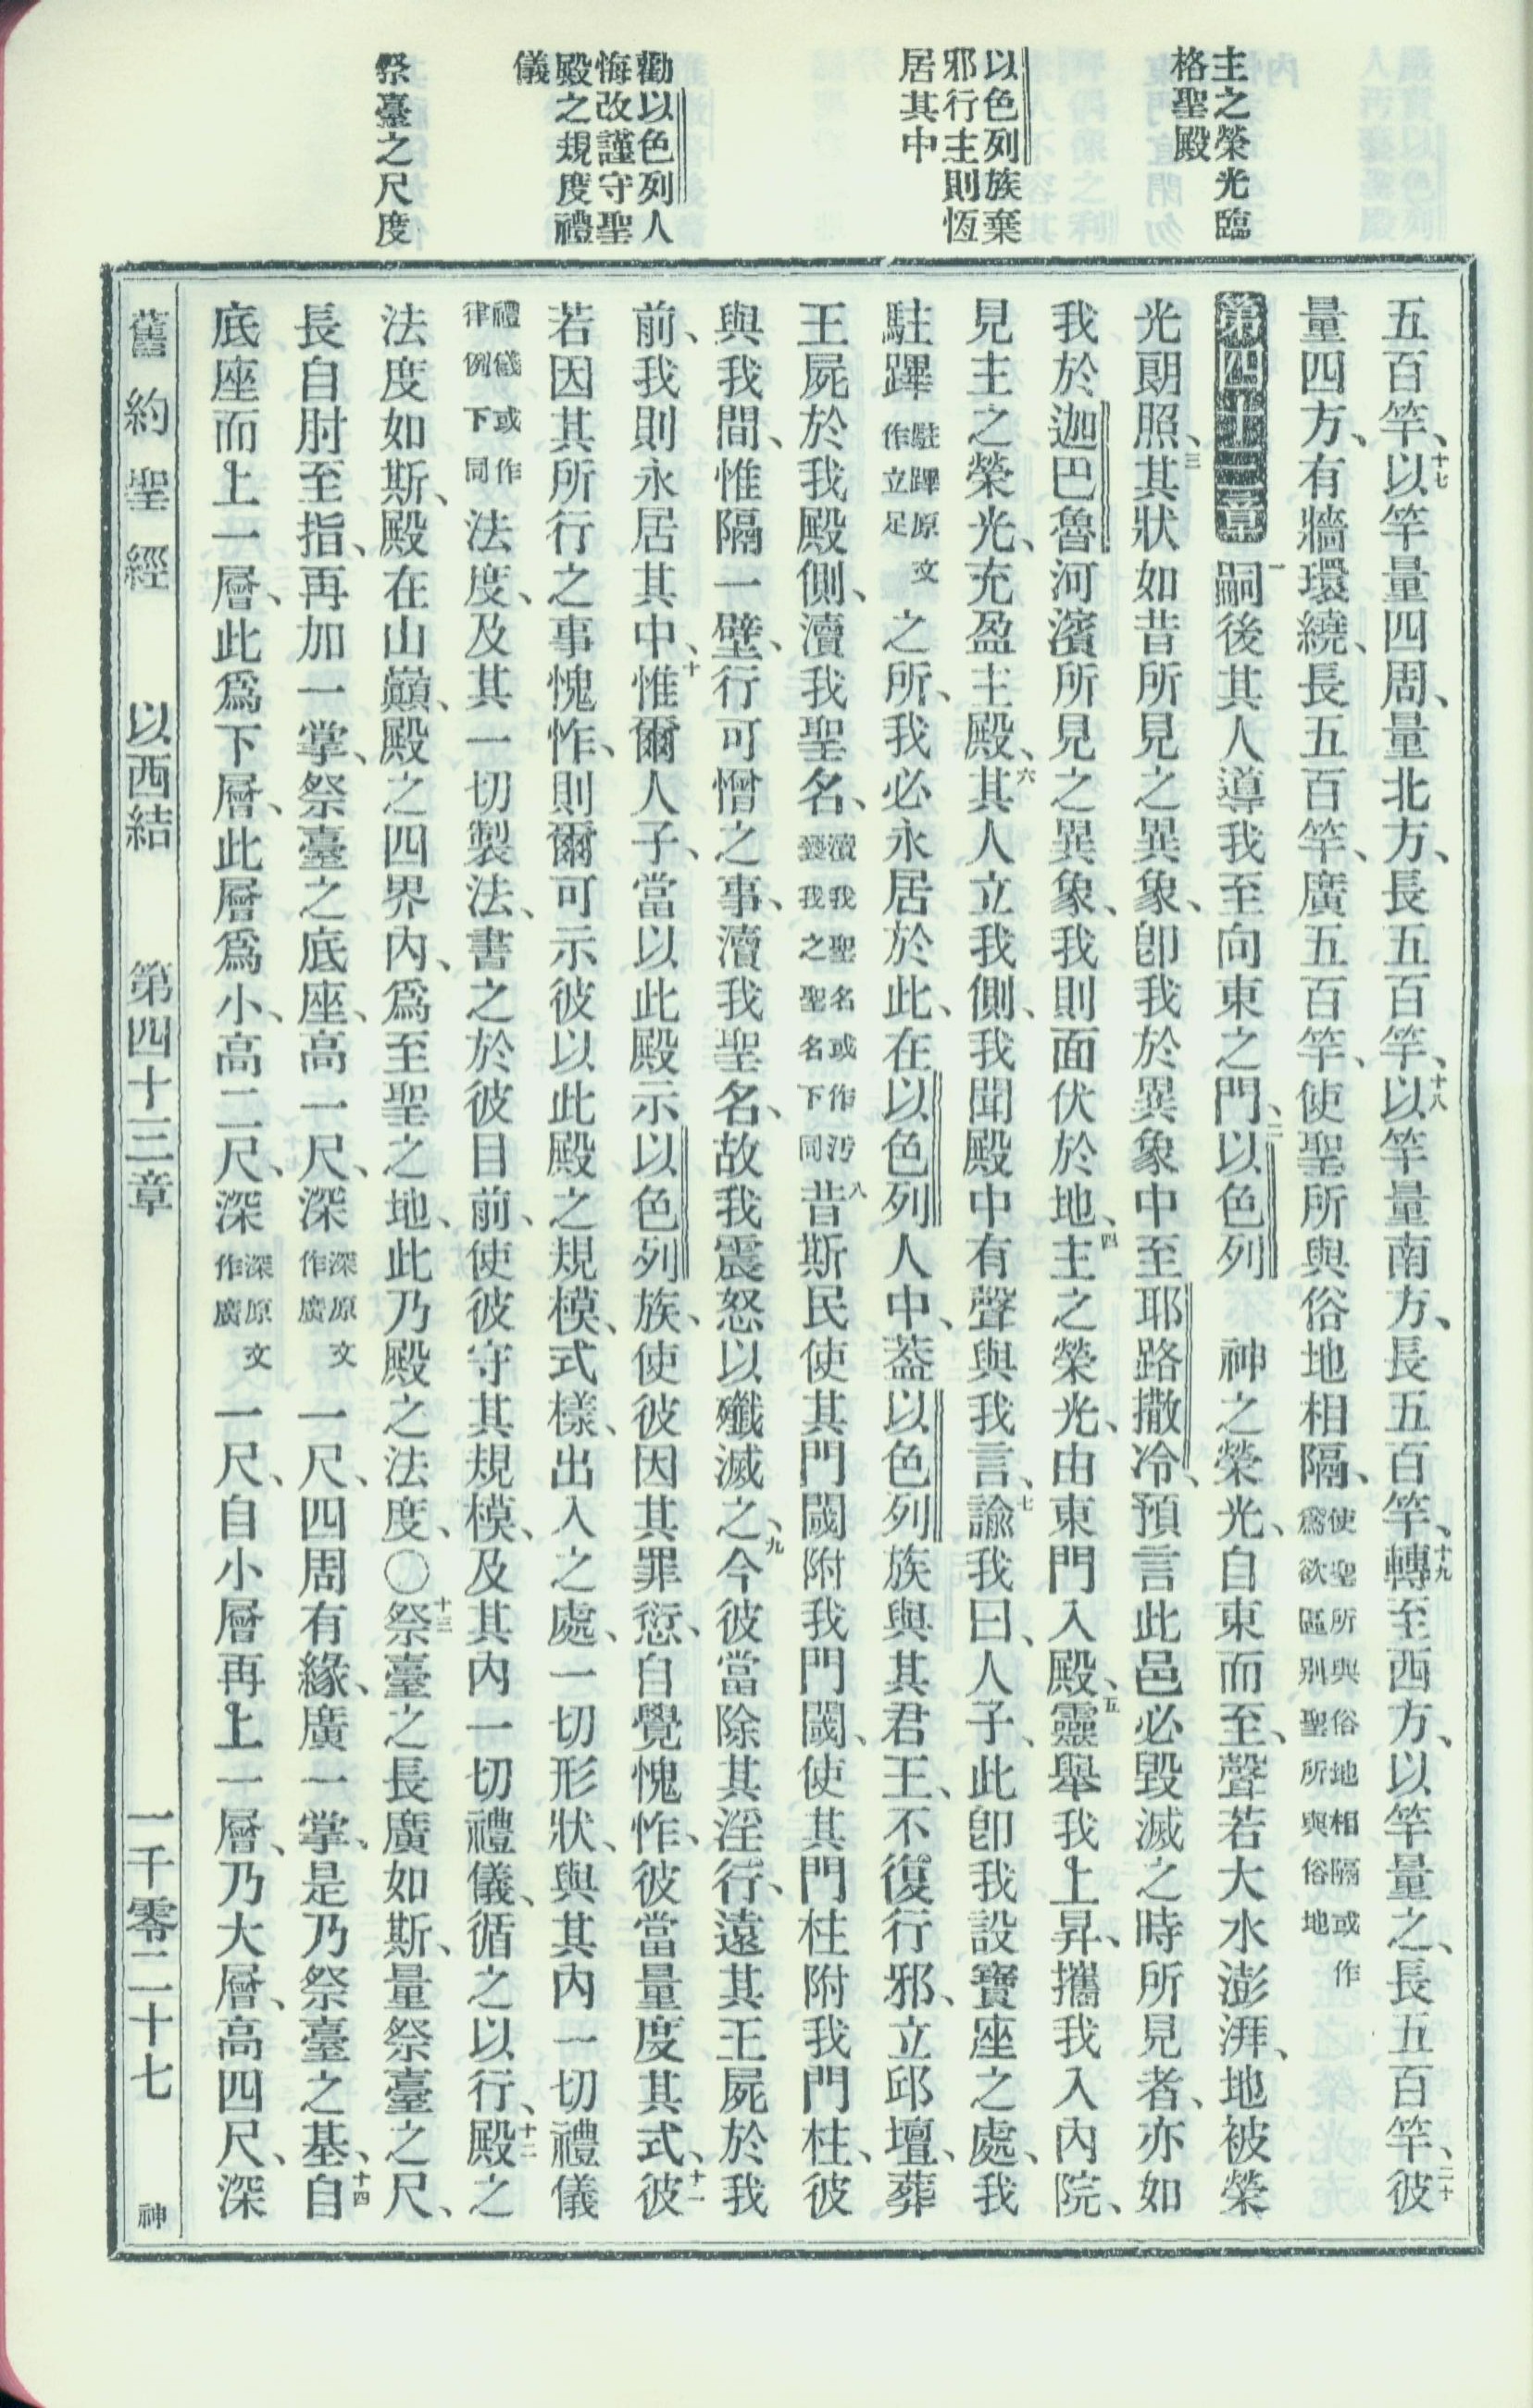 主之榮光臨
格聖殿
以色列族棄
邪行主則恆
居其中
勸以色列人
悔改謹守聖
殿之規度禮
儀
祭臺之尺度
五百竿、十七以竿量四周、量北方、長五百竿、十八以竿量南方、長五百竿、十九轉至西方、以竿量之、長五百竿、二十彼
量四方、有牆環繞、長五百竿、廣五百竿、使聖所與俗地相隔、使聖所與俗地相隔或作爲欲區別聖所與俗地
第四十三章 一嗣後其人導我至向東之門、二以色列 神之榮光、自東而至、聲若大水澎湃、地被榮
光朗照、三其狀如昔所見之異象、卽我於異象中至耶路撒冷、預言此邑必毀滅之時所見者、亦如
我於迦巴魯河濱所見之異象、我則面伏於地、四主之榮光、由東門入殿、五靈舉我上昇、攜我入內院、
見主之榮光、充盈主殿、六其人立我側、我聞殿中有聲與我言、七諭我曰、人子、此卽我設寶座之處、我
駐蹕駐蹕原文作立足之所、我必永居於此、在以色列人中、蓋以色列族與其君王、不復行邪、立邱壇、葬
王屍於我殿側、瀆我聖名、瀆我聖名或作汚褻我之聖名下同八昔斯民使其門閾附我門閾、使其門柱附我門柱、彼
與我間、惟隔一壁、行可憎之事、瀆我聖名、故我震怒以殲滅之、九今彼當除其淫行、遠其王屍於我
前、我則永居其中、十惟爾人子、當以此殿示以色列族、使彼因其罪愆、自覺愧怍、彼當量度其式、十一彼
若因其所行之事愧怍、則爾可示彼以此殿之規模、式樣、出入之處、一切形狀、與其內一切禮儀
禮儀或作律例下同法度、及其一切製法、書之於彼目前、使彼守其規模、及其內一切禮儀、循之以行、十二殿之
法度如斯、殿在山巓、殿之四界內、爲至聖之地、此乃殿之法度、〇十三祭臺之長廣如斯、量祭臺之尺、
長自肘至指、再加一掌、祭臺之底座、高一尺、深深原文作廣一尺、四周有緣、廣一掌、是乃祭臺之基、十四自
底座而上一層、此爲下層、此層爲小、高二尺、深深原文作廣一尺、自小層再上一層、乃大層、高四尺、深
舊約聖經 以西結 第四十三章 一千零二十七 神